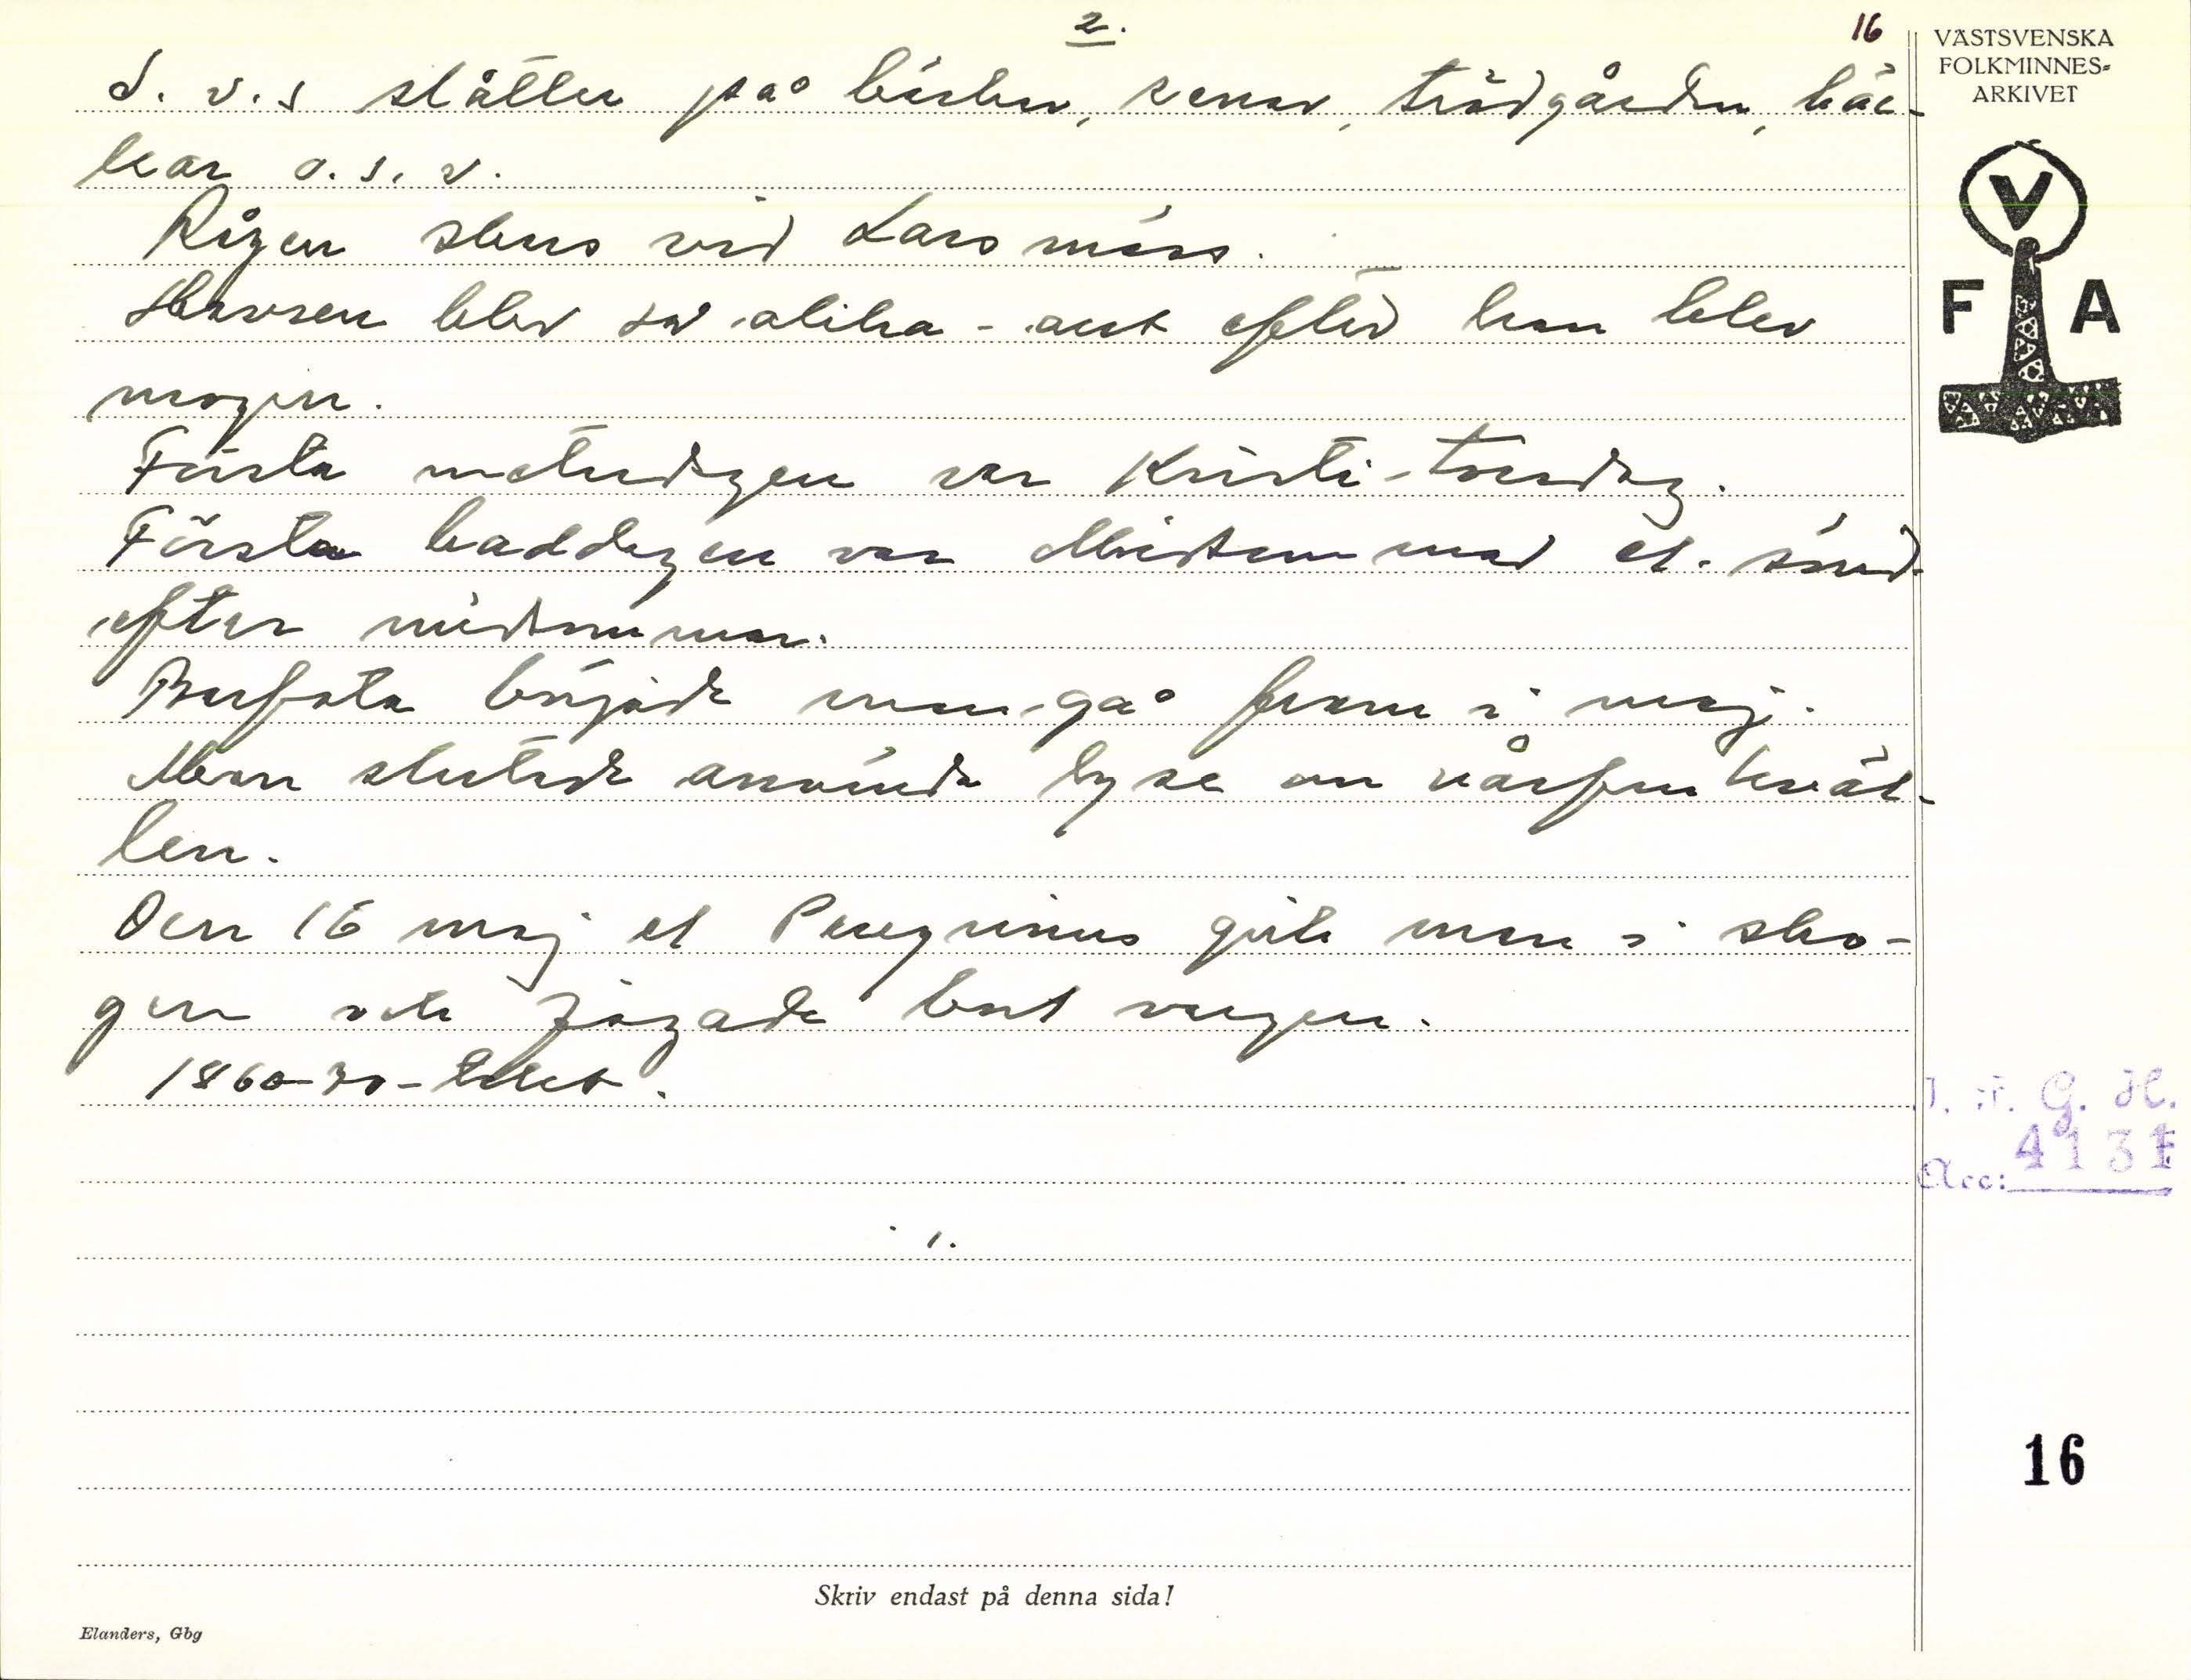 2.
16
VÄSTSVENSKA
FOLKMINNES=
ARKIVET
V
F A
D. v. s slåtter på backar, renar, trädgården, bäc-
kar o.s.v.
Rågen skars vid Larsmäss.
Havren blev så olika - allt efter han blev
mogen.
Första metardagen var Kristi-torsdag.
Första baddagen var Midsommar el. sönd.
efter midsommar.
Barfota började man gå fram i maj.
Man slutade använda lyse om vårfrukväl-
len.
Den 16 maj el Peregrinus gick man i sko-
gen och jagade bort vargen.
1860-70-talet.
1.
I. F. G. H.
Acc: 4131
16
Skriv endast på denna sida!
Elanders, Gbg